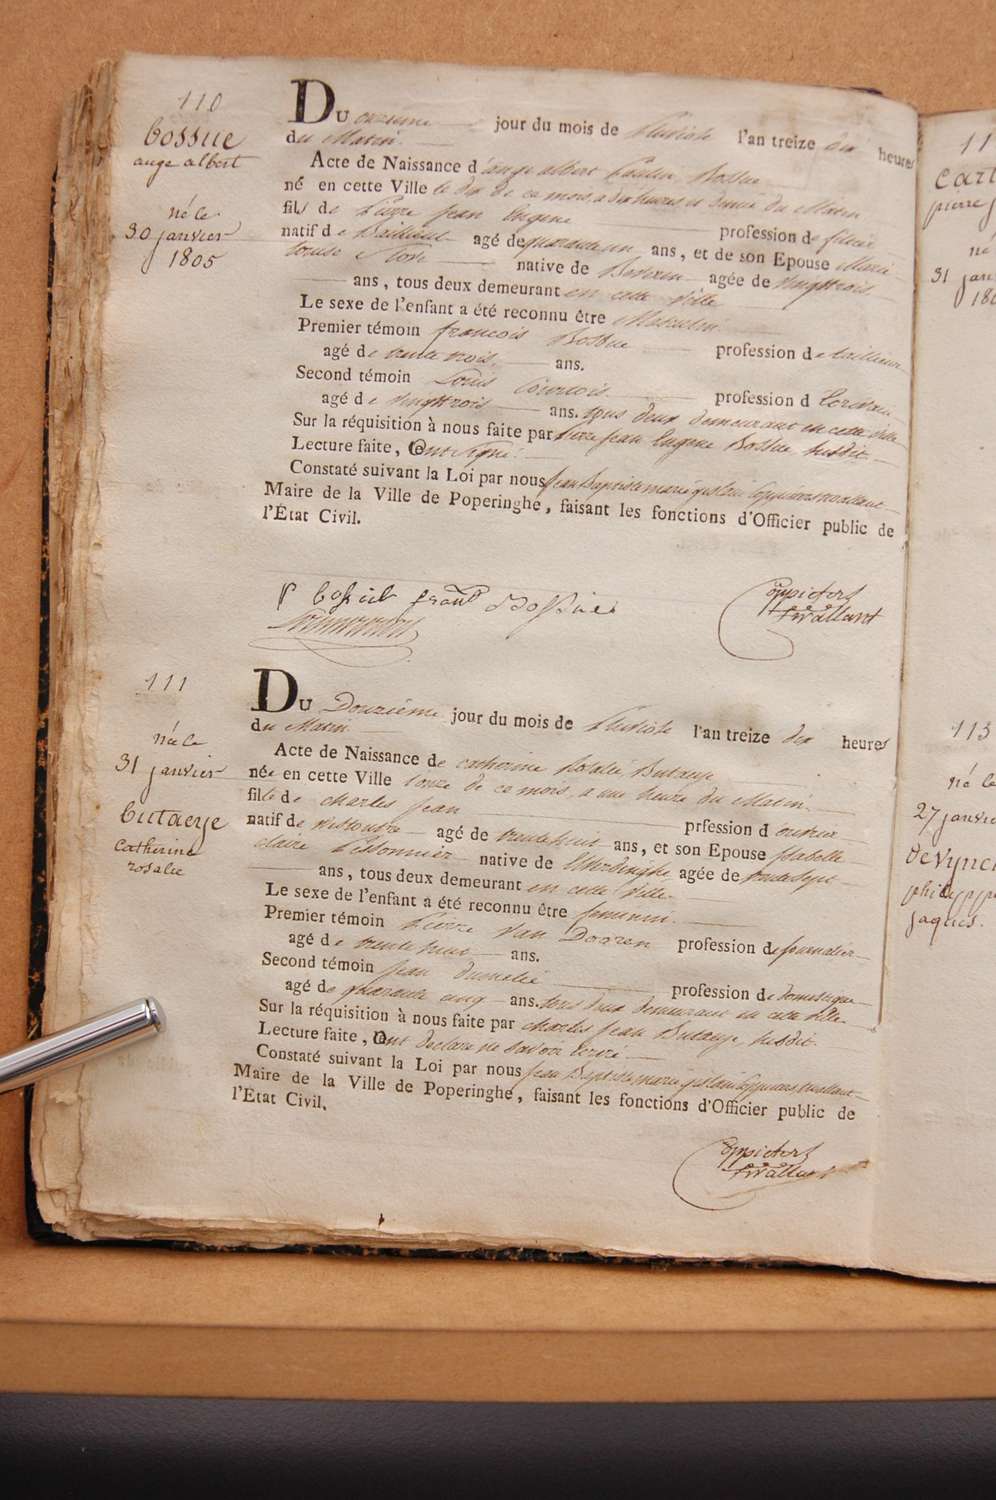 110
bossue
ange albert
né le
30 janvier
1805
Du onzieme jour du mois de Pluviose l'an treize dix heures
du Matin.
Acte de Naissance d'ange albert Bossue
né en cette Ville le dix de ce mois, a dix heures et demie du Matin
fils de Pierre Jean Eugene profession de fileur
natif de Bailleul agé de quarante un ans, et de son Epouse Marie
native de agée de vingttrois
ans, tous deux demeurant en cette ville
Le sexe de l'enfant a été reconnu être Masculin
Premier témoin françois Bossue profession de tailleur
agé de trente trois ans.
Second témoin Louis Courtois profession d'Ecrivain
agé de vingttrois ans. tous deux demeurant en cette ville
Sur la réquisition à nous faite par Pierre Jean Eugene Bossue susdit
Lecture faite, Ont signé.
Constaté suivant la Loi par nous Jean Baptiste marie
Maire de la Ville de Poperinghe, faisant les fonctions d'Officier public de
l'État Civil.
111
née le
31 janvier
butaeye
catherine
rosalie
Du Douzième jour du mois de Pluviose l'an treize dix heures
du Matin
Acte de Naissance de catherine Rosalie Butaeye
née en cette Ville l'onze de ce mois, a une heure du Matin
fille de charles jean prfession d'ouvrier
natif de agé de trentehuit ans, et son Epouse isabelle
claire native de agée de trentesept
ans, tous deux demeurant en cette ville
Le sexe de l'enfant a été reconnu être feminin
Premier témoin Pierre Van Dorren profession de journalier
agé de trente huit ans.
Second témoin jean profession de domestique
agé de quarante cinq ans. tous deux demeurant en cette ville
Sur la réquisition à nous faite par charles jean Butaeye susdit
Lecture faite, Ont declaré ne savoir ecrire
Constaté suivant la Loi par nous Jean Baptiste marie
Maire de la Ville de Poperinghe, faisant les fonctions d'Officier public de
l'Etat Civil.
11
cart
pierre j
né
31 jan
18
113
né le
27 janvie
devynck
philippe
jaques.